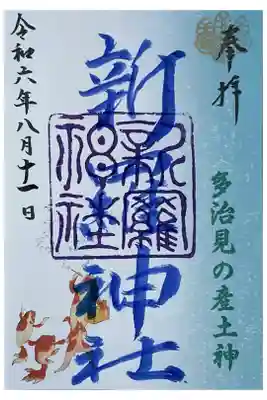 奉拝
多治見の産土神
新羅神社
新羅神社
令和六年八月十一日